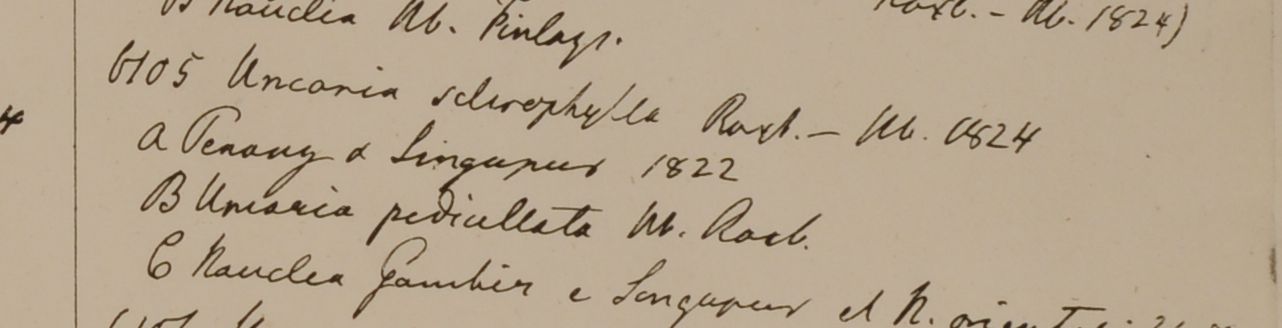 B Nauclea Hb. Finlays.
Roxb. – Hb. 1824)
6105 Uncaria sclerophylla Roxb. – Hb. 1824
4
a Penang & Singapur 1822
B Uncaria pedicellata Hb. Roxb.
C Nauclea Gambir e Singapur et N.